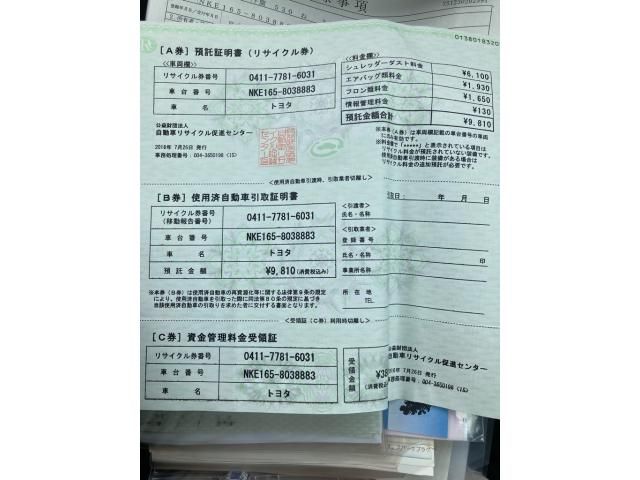 NKE165-80388
0138018320
[A券] 預託証明書 (リサイクル券)
<<車両欄>>
リサイクル券番号 0411-7781-6031
車台番号 NKE165-8038883
車名 トヨタ
公益財団法人
自動車リサイクル促進センター
2018年 7月26日 発行
事務処理番号: 004-3650198 (15)
<<料金欄>>
シュレッダーダスト料金 ¥6,100
エアバッグ類料金 ¥1,930
フロン類料金 ¥1,650
情報管理料金 ¥130
預託金額合計 ¥9,810
※本券(A券)は車両欄記載の車台番号の車両
に対し有効です。
※料金欄で(*****)と表示されている項目は
リサイクル料金が預託されていない装備です。
使用済自動車引渡時に装備がある場合は
リサイクル料金の追加預託が必要です。
<使用済自動車引渡時、引取業者切離し>
[B券] 使用済自動車引取証明書
リサイクル券番号
(移動報告番号) 0411-7781-6031
車台番号 NKE165-8038883
車名 トヨタ
預託金額 ¥9,810 (消費税込み)
※本券(B券)は使用済自動車の再資源化等に関する法律第9条の規定
により、使用済自動車を引取った際に同法第80条の規定に基づき
当該使用済自動車の引取りを求めた者に交付する書面となります。
引取日: 年 月 日
<引渡者>
氏名・名称
<引取業者>
登録番号
氏名・名称 印
事業所名称
所在地
TEL
<受領証(C券)利用時切離し>
[C券] 資金管理料金受領証
リサイクル券番号 0411-7781-6031
車台番号 NKE165-8038883
車名 トヨタ
受領金額
¥38
(消費税込
公益財団法人
自動車リサイクル促進センター
年 7月26日 発行
事務処理番号: 004-3650198 (15)